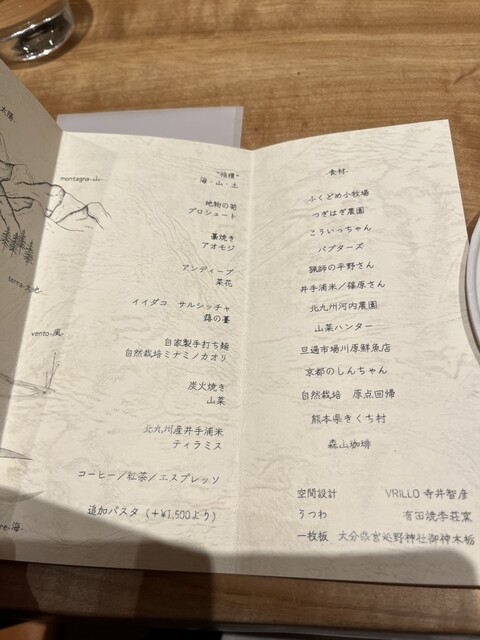 太陽.
montagna-山-
terra-大地-
vento-風-
re-海-
"佶櫟"
海・山・土
地物の筍
プロシュート
藁焼き
アオモジ
アンディーブ
菜花
イイダコ サルシッチャ
蕗の薹
自家製手打ち麺
自然栽培ミナミノカオリ
炭火焼き
山菜
北九州産井手浦米
ティラミス
コーヒー/紅茶/エスプレッソ
追加パスタ(+¥1,500より)
食材.
ふくどめ小牧場
つぎはぎ農園
こういっちゃん
バブターズ
猟師の平野さん
井手浦米/篠原さん
北九州河内農園
山菜ハンター
旦過市場川原鮮魚店
京都のしんちゃん
自然栽培 原点回帰
熊本県きくち村
森山珈琲
空間設計 VRILLO 寺井智彦
うつわ 有田焼李荘窯
一枚板 大分県宮処野神社御神木栃